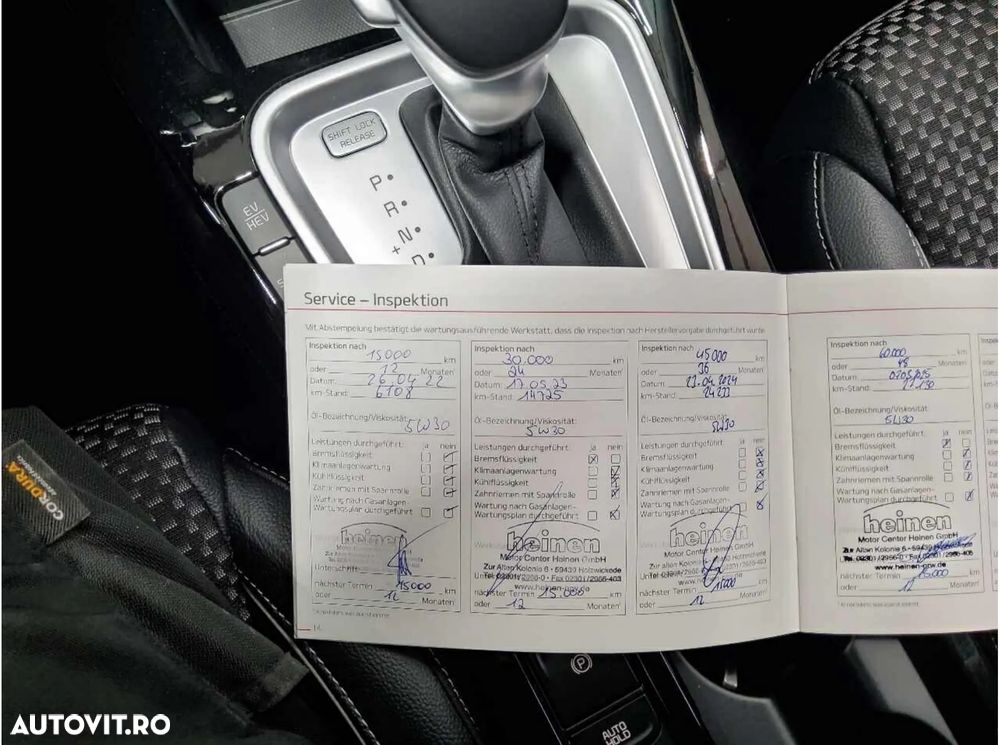 SHIFT LOCK
RELEASE
P
R
N
+
D
EV
HEV
Service – Inspektion
Mit Abstempelung bestätigt die wartungsausführende Werkstatt, dass die Inspektion nach Herstellervorgabe durchgeführt wurde
Inspektion nach
15000 km
oder 12 Monaten
Datum: 26.04.22
km-Stand: 6108
Öl-Bezeichnung/Viskosität:
5W30
Leistungen durchgeführt: ja nein
Bremsflüssigkeit
Klimaanlagenwartung
Kühlflüssigkeit
Zahnriemen mit Spannrolle
Wartung nach Gasanlagen-
Wartungsplan durchgeführt
heinen
Motor Center Heinen GmbH
Unterschrift
nächster Termin 15000
oder 12 Monaten
14
Inspektion nach
30.000 km
oder 24 Monaten
Datum: 17.05.23
km-Stand: 14725
Öl-Bezeichnung/Viskosität:
5W30
Leistungen durchgeführt: ja nein
Bremsflüssigkeit
Klimaanlagenwartung
Kühlflüssigkeit
Zahnriemen mit Spannrolle
Wartung nach Gasanlagen-
Wartungsplan durchgeführt
heinen
Motor Center Heinen GmbH
Zur Alten Kolonie 6 • 59439 Holzwickede
Tel. 02301/2966-0 • Fax 02301/2966-403
www.heinen-nrw.de
nächster Termin 15.000 km
oder 12 Monaten
Inspektion nach
45000 km
oder 36 Monaten
Datum: 23.04.2024
km-Stand: 24233
Öl-Bezeichnung/Viskosität:
5W30
Leistungen durchgeführt: ja nein
Bremsflüssigkeit
Klimaanlagenwartung
Kühlflüssigkeit
Zahnriemen mit Spannrolle
Wartung nach Gasanlagen-
Wartungsplan durchgeführt
heinen
Motor Center Heinen GmbH
nächster Termin 15000 km
oder 12 Monaten
Inspektion nach
60.000 km
oder 48 Monaten
Datum:
km-Stand:
Öl-Bezeichnung/Viskosität:
5W30
Leistungen durchgeführt: ja nein
Bremsflüssigkeit
Klimaanlagenwartung
Kühlflüssigkeit
Zahnriemen mit Spannrolle
Wartung nach Gasanlagen-
Wartungsplan durchgeführt
heinen
Motor Center Heinen GmbH
Zur Alten Kolonie 6 • 59439
www.heinen-nrw.de
nächster Termin 15000 km
oder 12 Monaten
CORDURA
P
AUTO
HOLD
AUTOVIT.RO